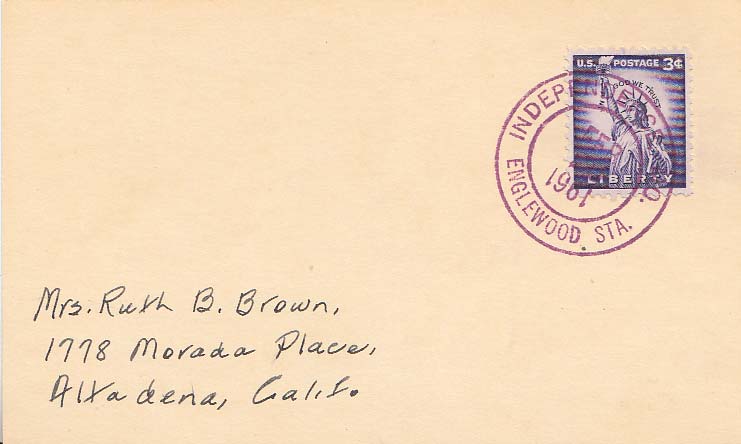 U.S. POSTAGE 3¢
IN GOD WE TRUST
LIBERTY
INDEPENDENCE, MO.
FEB
1961
ENGLEWOOD STA.
Mrs. Ruth B. Brown,
1778 Morada Place,
Altadena, Calif.